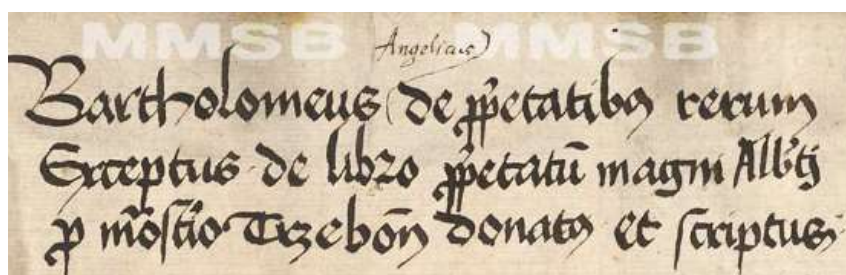 MMSB MMSB
Angelicus)
Bartholomeus de ꝓp̃etatibꝯ rerum
Exceptus de libro ꝓp̃etatũ magni Alb̃tj
ꝓ mõstĩo Trzebon̄ donatꝯ et scriptus